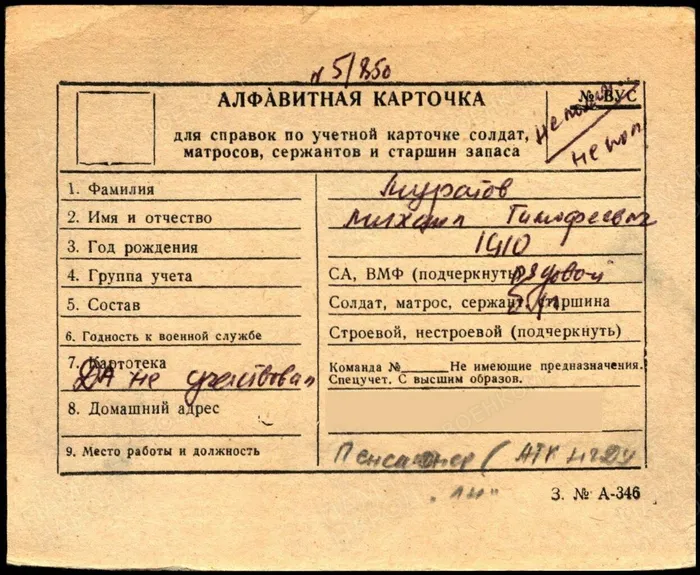 N 5/850
АЛФАВИТНАЯ КАРТОЧКА
№ ВУС
для справок по учетной карточке солдат,
матросов, сержантов и старшин запаса
не поп
1. Фамилия Муратов
2. Имя и отчество Михаил Тимофеевич
3. Год рождения 1910
4. Группа учета СА, ВМФ (подчеркнуть) рядовой
5. Состав Солдат, матрос, сержант, старшина б/п
6. Годность к военной службе Строевой, нестроевой (подчеркнуть)
7. Картотека Команда № Не имеющие предназначения.
Спецучет. С высшим образов.
не участвовал
8. Домашний адрес
9. Место работы и должность Пенсионер (АТК НГДУ
"ЛН"
З. № А-346